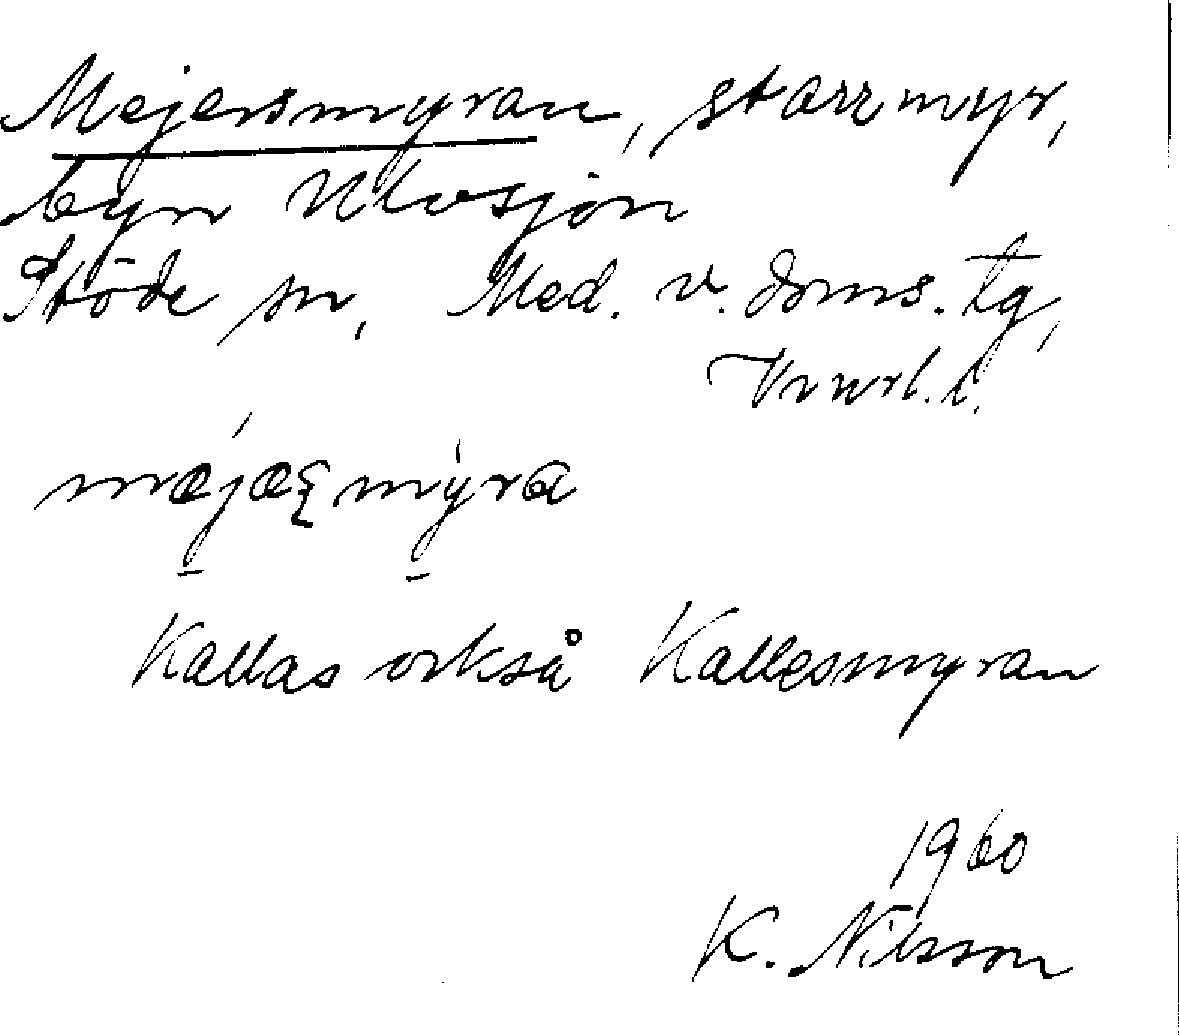 Mejersmyran, starrmyr,
byn Ulvsjön
Stöde sn, Med. v. doms. tg,
Vnrl. l.
mǽjæʂmýra
Kallas också Kallesmyran
1960
K. Nilsson